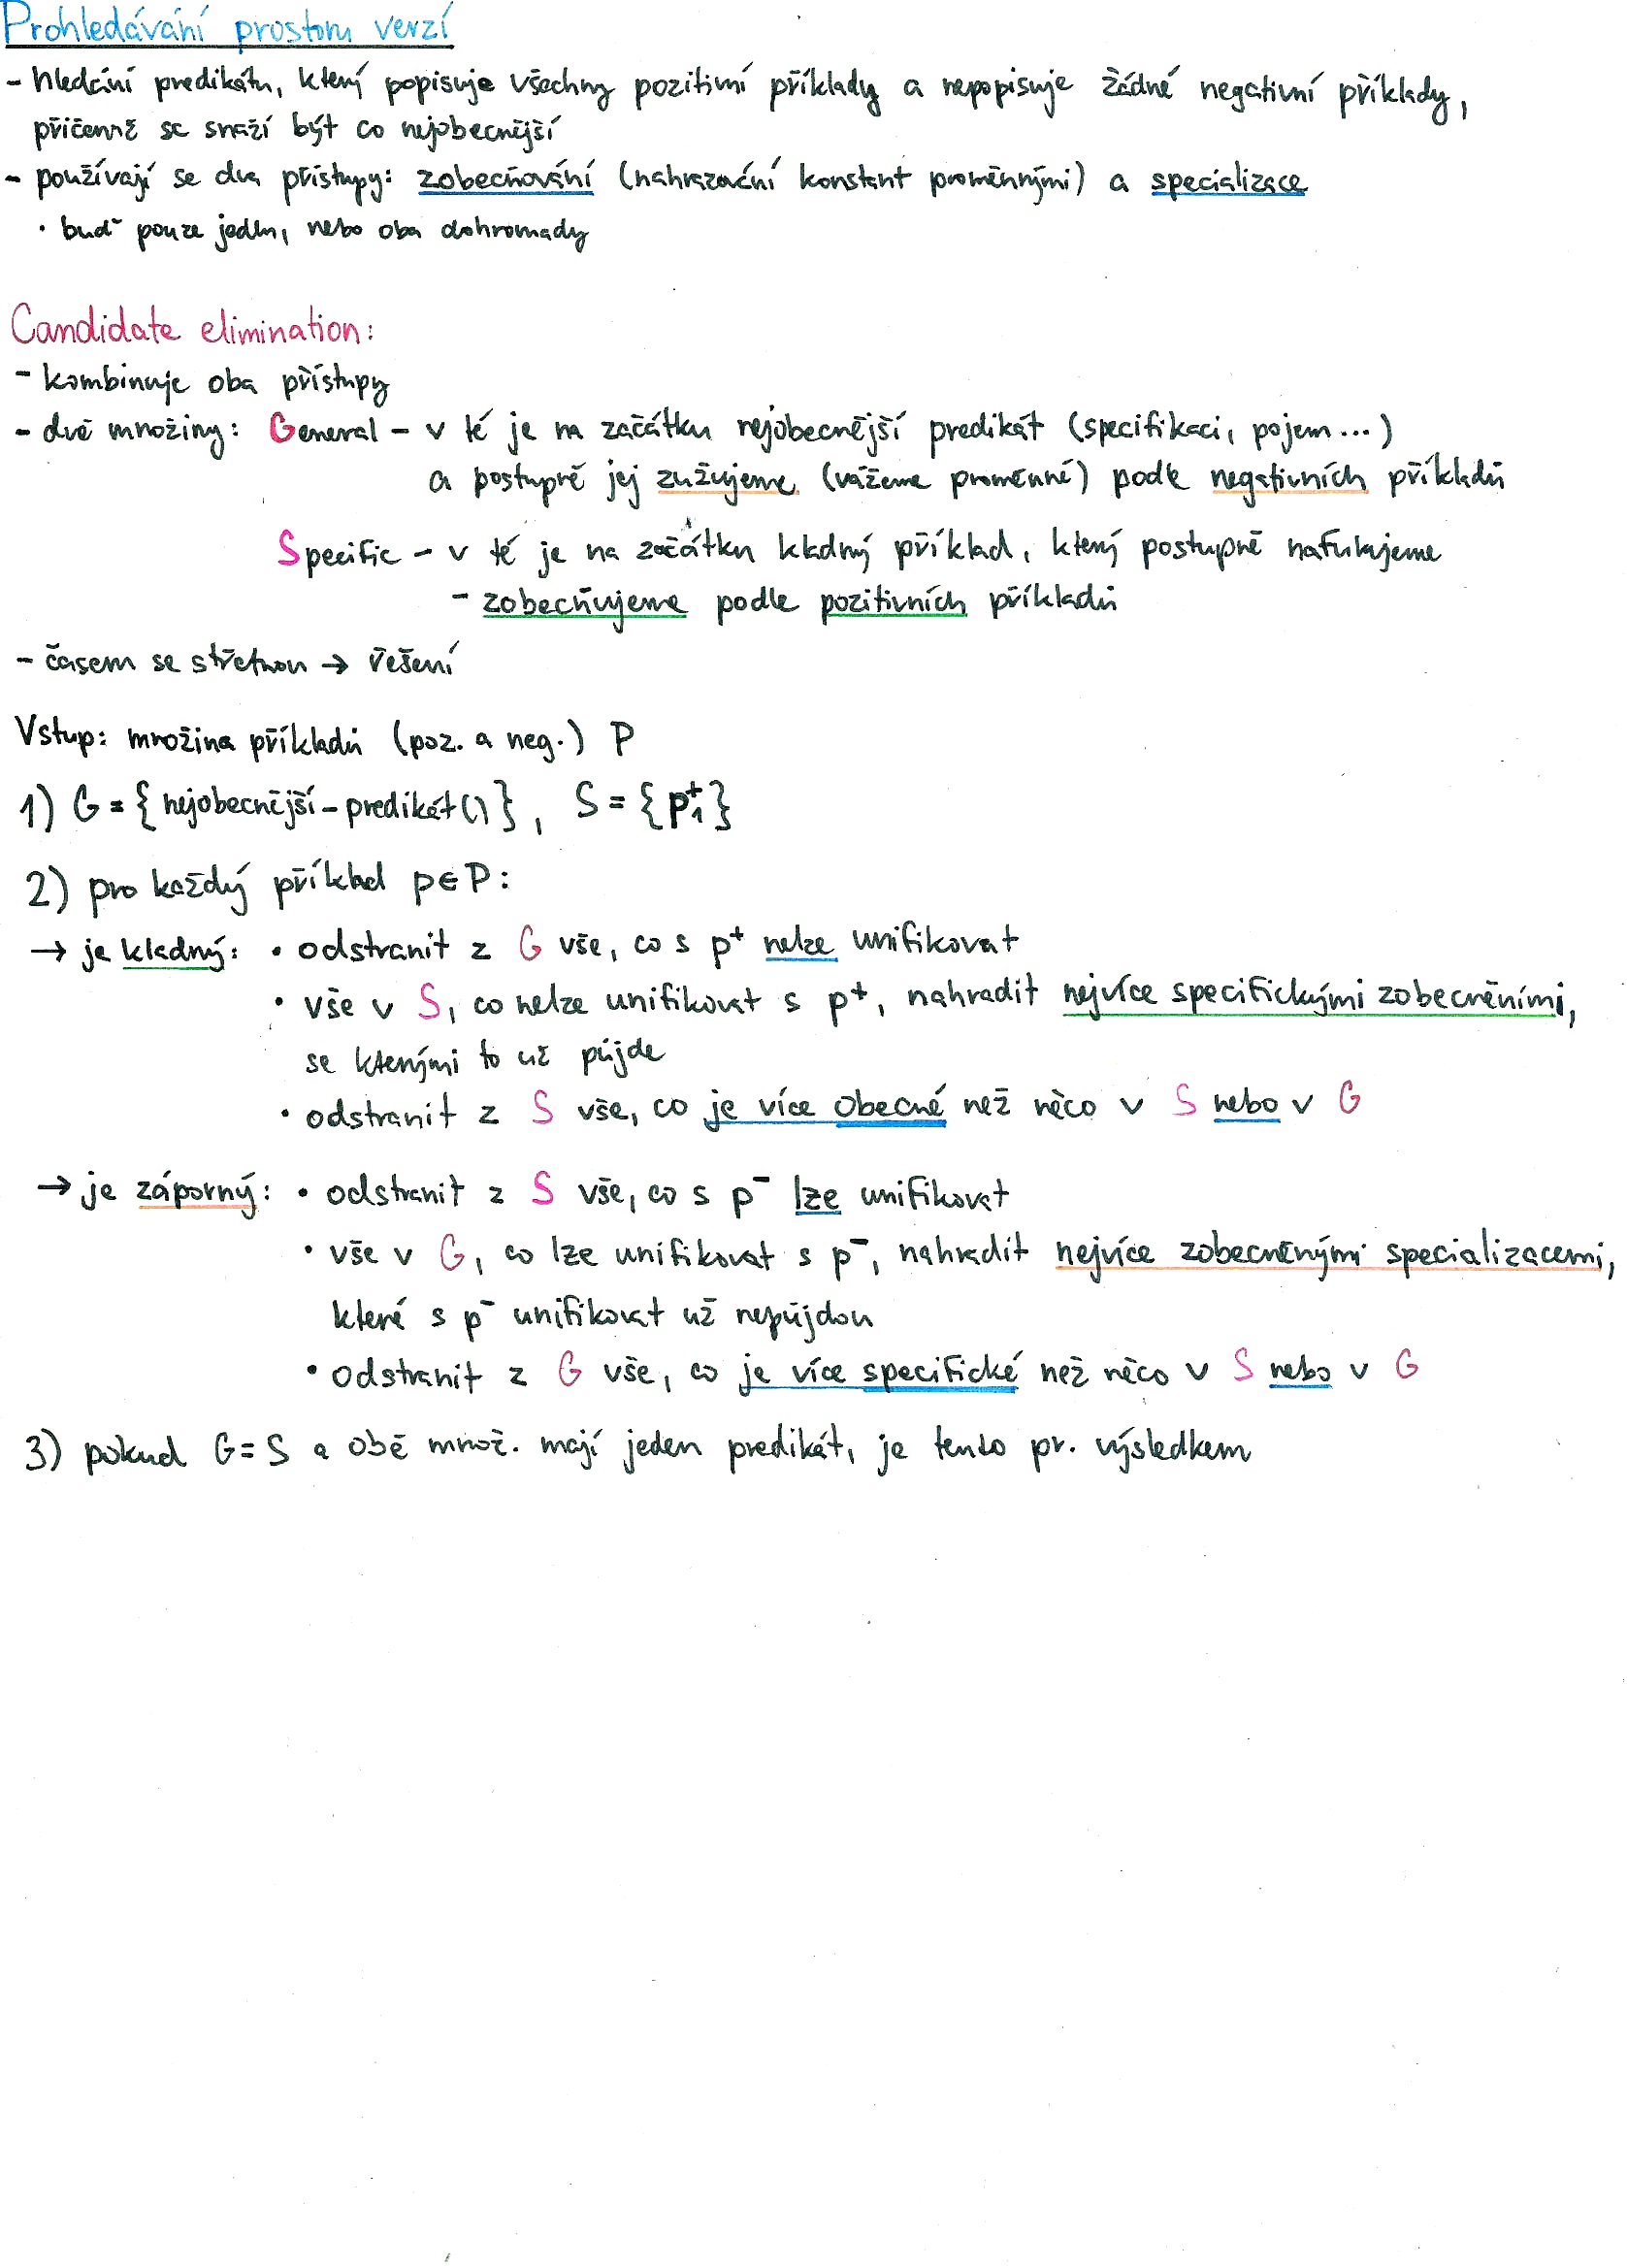 Prohledávání prostoru verzí
- hledání predikátu, který popisuje všechny pozitivní příklady a nepopisuje žádné negativní příklady,
přičemž se snaží být co nejobecnější
- používají se dva přístupy: zobecňování (nahrazování konstant proměnnými) a specializace
• buď pouze jednu, nebo oba dohromady
Candidate elimination:
- kombinuje oba přístupy
- dvě množiny: General - v té je na začátku nejobecnější predikát (specifikaci, pojem...)
a postupně jej zužujeme (vážeme proměnné) podle negativních příkladů
Specific - v té je na začátku kladný příklad, který postupně nafukujeme
- zobecňujeme podle pozitivních příkladů
- časem se střetnou → řešení
Vstup: množina příkladů (poz. a neg.) P
1) G = {nejobecnější-predikát()}, S = {p₁⁺}
2) pro každý příklad p∈P:
→ je kladný: • odstranit z G vše, co s p⁺ nelze unifikovat
• vše v S, co nelze unifikovat s p⁺, nahradit nejvíce specifickými zobecněními,
se kterými to už půjde
• odstranit z S vše, co je více obecné než něco v S nebo v G
→ je záporný: • odstranit z S vše, co s p⁻ lze unifikovat
• vše v G, co lze unifikovat s p⁻, nahradit nejvíce zobecněnými specializacemi,
které s p⁻ unifikovat už nepůjdou
• odstranit z G vše, co je více specifické než něco v S nebo v G
3) pokud G=S a obě množ. mají jeden predikát, je tento pr. výsledkem